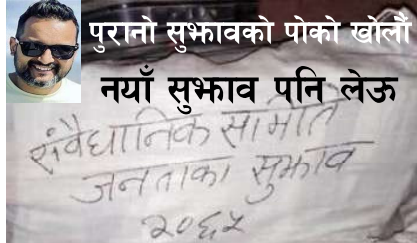 पुरानो सुझावको पोको खोलौं
नयाँ सुझाव पनि लेऊ
संवैधानिक समिति
जनताका सुझाव
२०६५